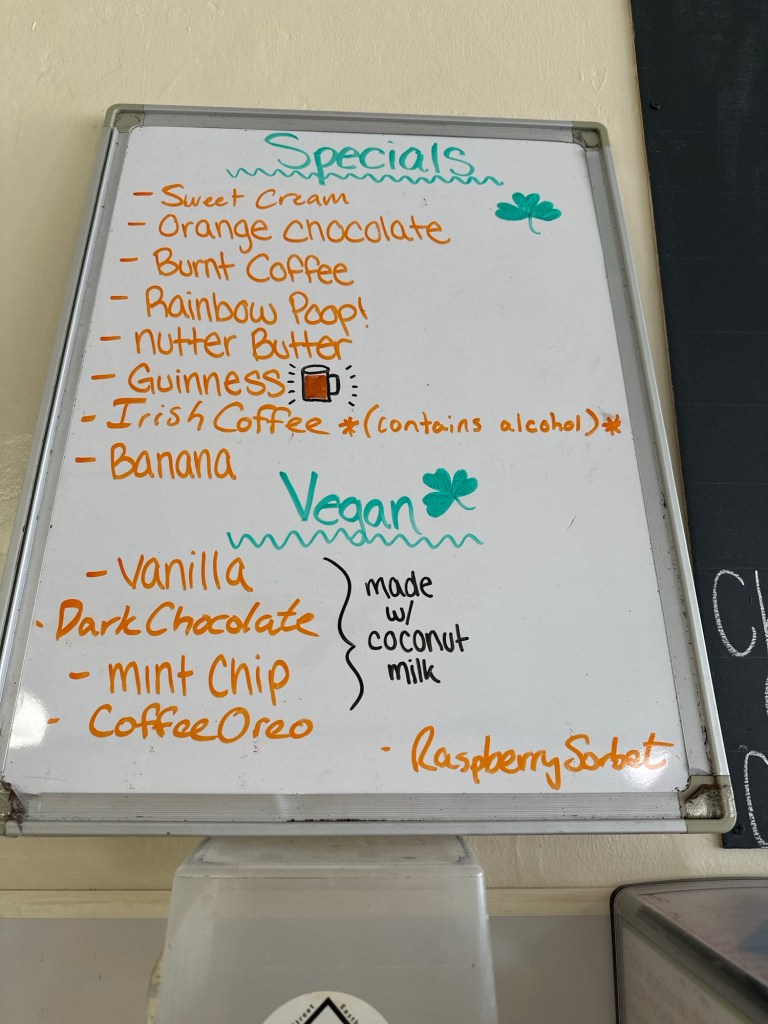 Specials
- Sweet Cream
- Orange chocolate
- Burnt Coffee
- Rainbow Poop!
- nutter Butter
- Guinness
- Irish Coffee *(contains alcohol)*
- Banana
Vegan
- Vanilla
- Dark Chocolate
- mint Chip
- Coffee Oreo
made
w/
coconut
milk
- Raspberry Sorbet
Street